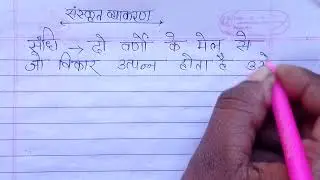 संस्कृत व्याकरण
संधि → दो वर्णो के मेल से
जो विकार उत्पन्न होता है उसे